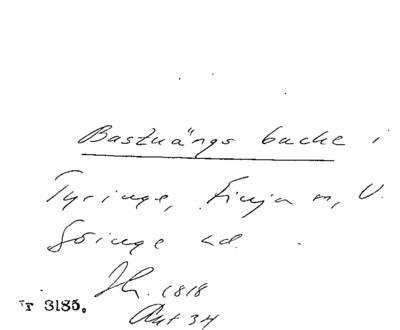 Bastuängs backe i
Tyringe, Finja sn, V.
Göinge hd.
1818
Ant 34
Nr 3185.